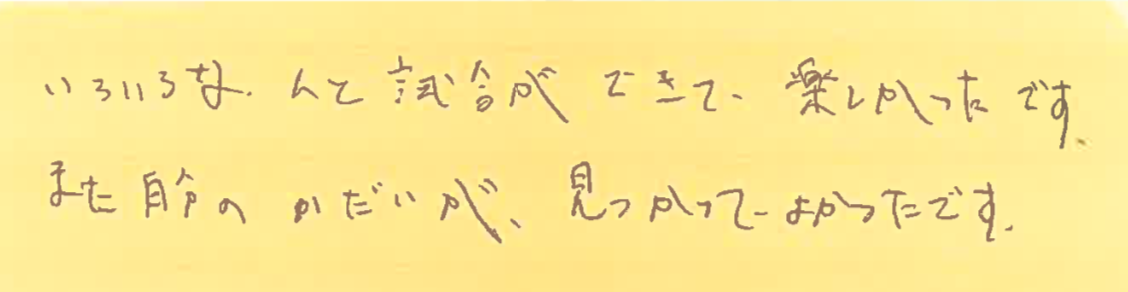 いろいろな人と試合ができて、楽しかったです。
また自分のかだいが、見つかってよかったです。